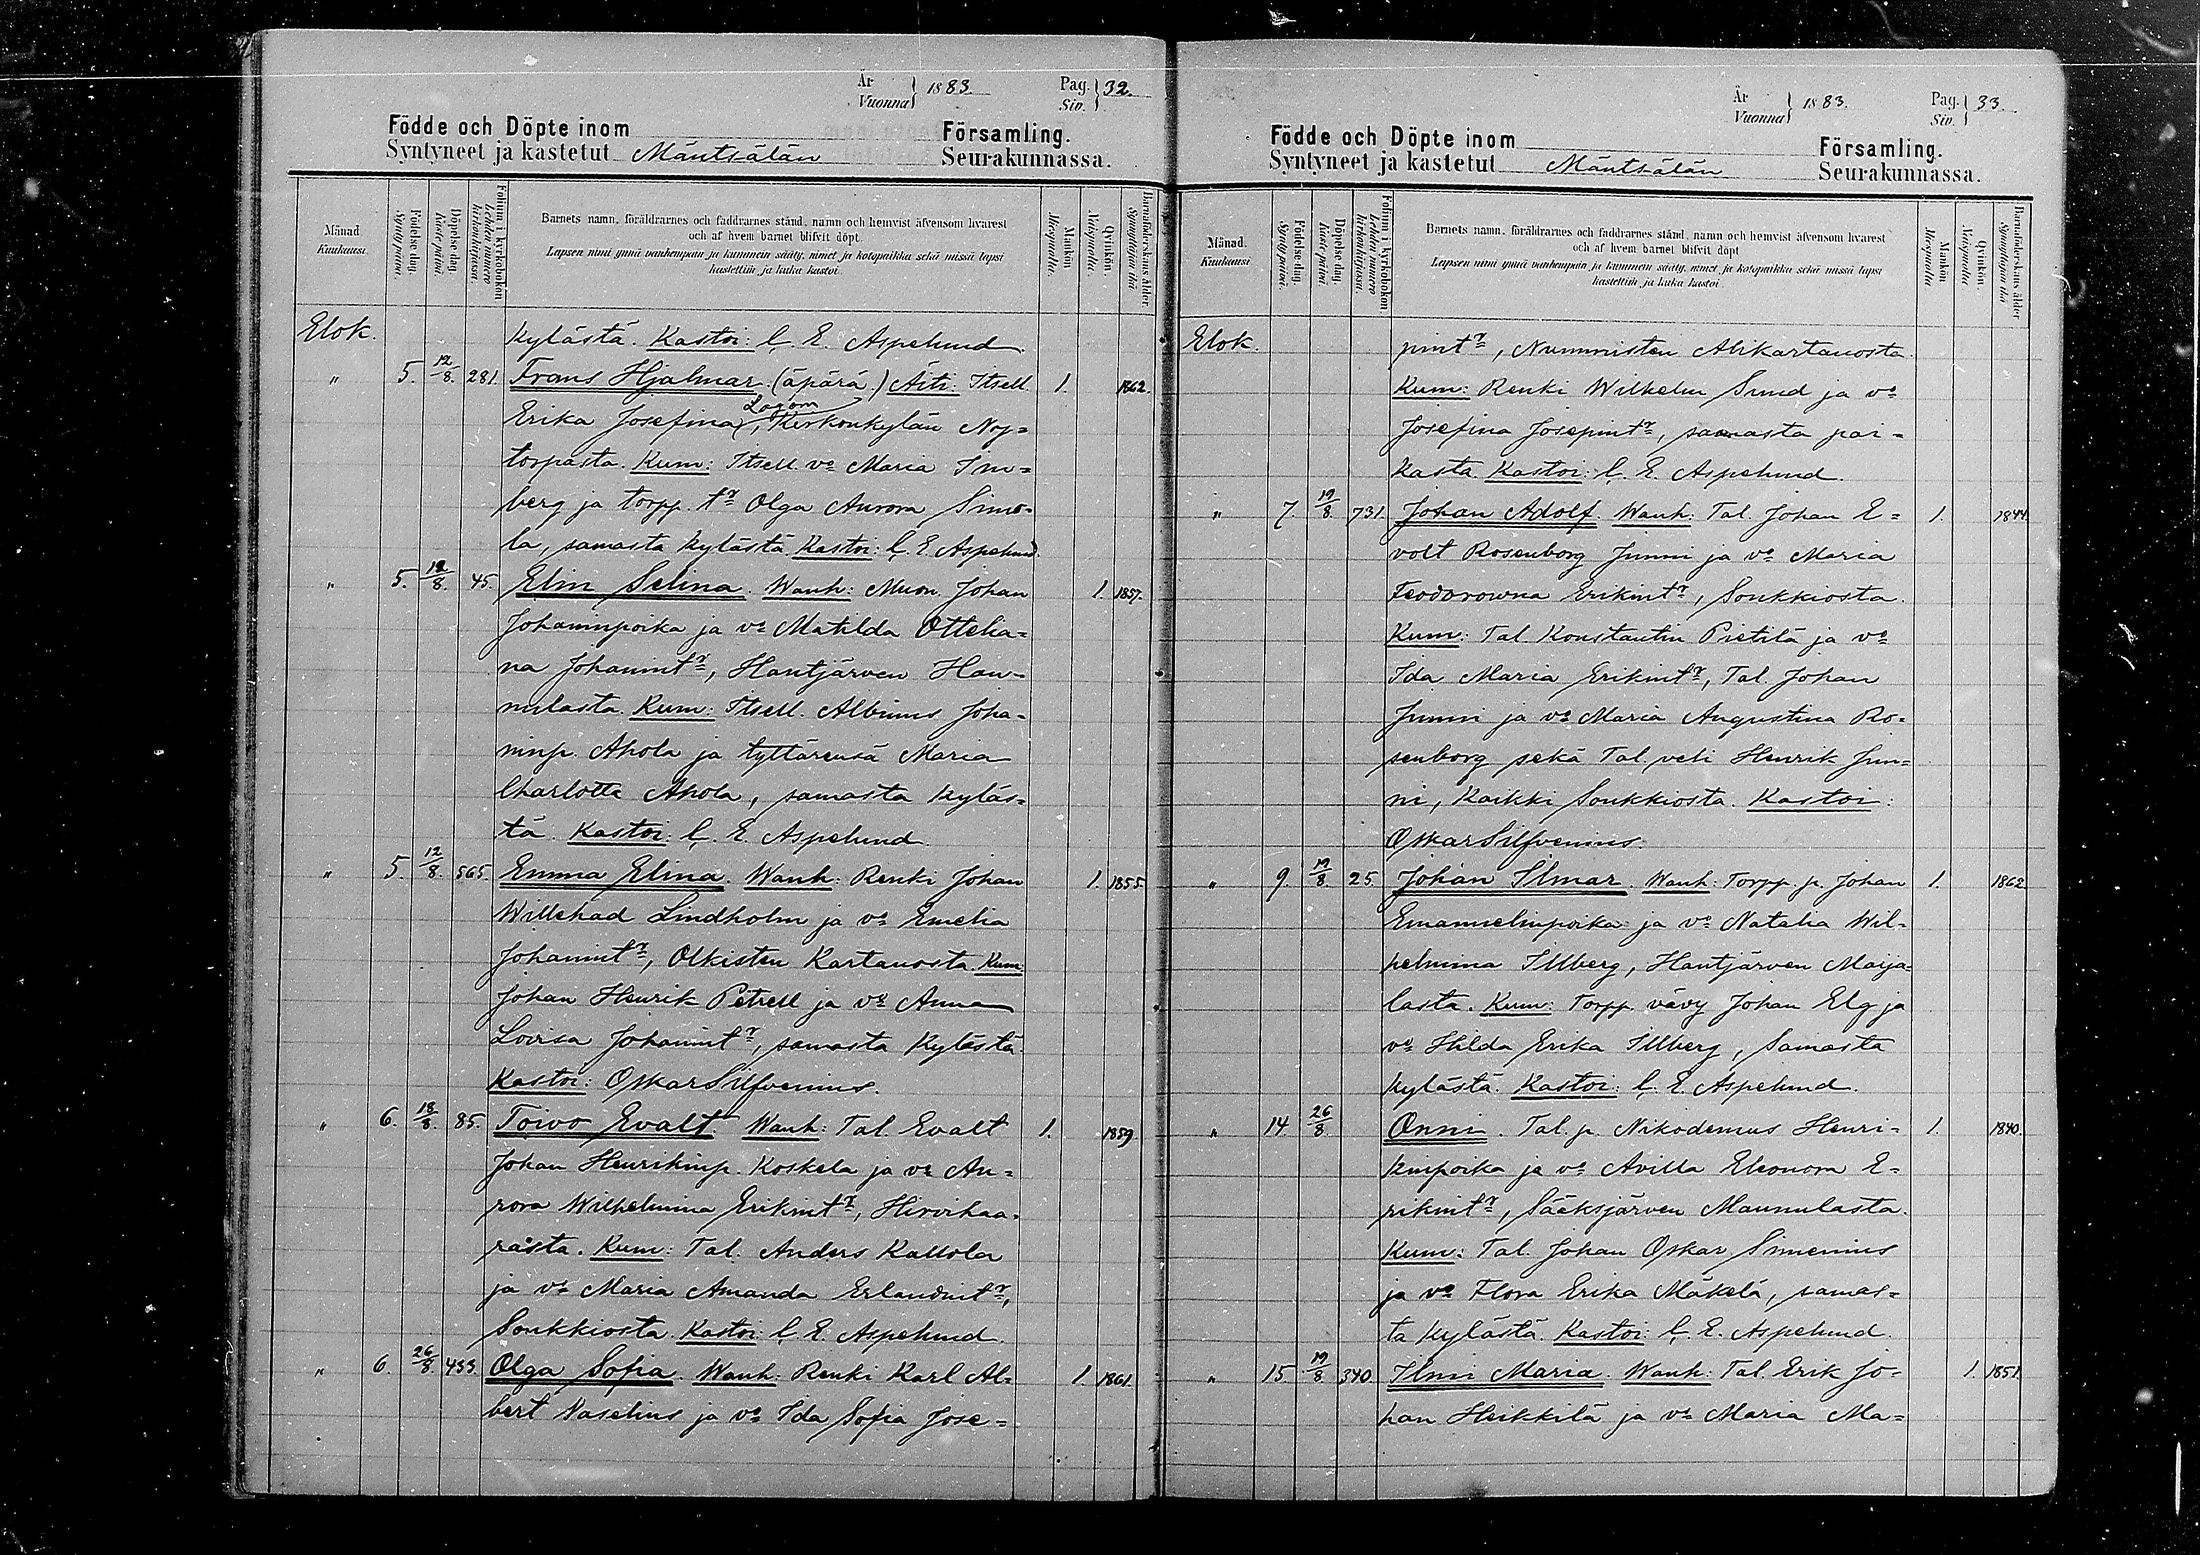 År
Vuonna
1883.
Pag.
Siv.
32.
Födde och Döpte inom
Församling.
Syntyneet ja kastetut Mäntsälän Seurakunnassa.
Månad.
Kuukausi.
Födelse-dag.
Syntypäivä.
Döpelse-dag.
Kaste-päivä.
Folium i kyrkobokon
Lehden numero
kirkonkirjassa.
Barnets namn, föräldrarnes och faddrarnes stånd, namn och hemvist äfvensom hvarest
och af hvem barnet blifvit döpt.
Lapsen nimi ynnä vanhempain ja kummein sääty, nimet ja kotopaikka sekä missä lapsi
kastettiin ja kuka kastoi.
Mankön
Miespuolta.
Qvinkön.
Naispuolta.
Barnaföderskans ålder
Synnyttäjän ikä
Elok.
kylästä. Kastoi: C. E. Aspelund.
" 5. 12/8. 281. Frans Hjalmar. (äpärä.) Äiti: Itsell. 1. 1862.
Lagom
Erika Josefina, Kirkonkylän Ny=
torpasta. Kum: Itsell. vo Maria Im=
berg ja torpp. tr Olga Aurora Simo=
la, samasta kylästä. Kastoi: C. E. Aspelund.
" 5. 12/8. 45. Elin Selina. Wanh: Muon. Johan 1. 1857.
Johaninpoika ja vo Matilda Ottelia=
na Johanintr, Hautjärven Han=
nulasta. Kum: Itsell. Albinus Joha=
ninp. Ahola ja tyttärensä Maria
Charlotta Ahola, samasta kyläs=
tä. Kastoi: C. E. Aspelund.
" 5. 12/8. 565. Emma Elina. Wanh: Renki Johan 1. 1855.
Willehad Lindholm ja vo Emelia
Johanintr, Olkisten Kartanosta. Kum:
Johan Henrik Petrell ja vo Anna
Lovisa Johanintr, samasta kylästä.
Kastoi: Oskar Silfvenius.
" 6. 18/8. 85. Toivo Evalt. Wanh: Tal. Evalt 1. 1859.
Johan Henrikinp. Koskela ja vo Au=
rora Wilhelmina Erikintr, Hirvihaa=
rasta. Kum: Tal. Anders Kallola
ja vo Maria Amanda Erlandintr,
Soukkiosta. Kastoi: C. E. Aspelund.
" 6. 26/8 433. Olga Sofia. Wanh: Renki Karl Al= 1. 1861.
bert Naselius ja vo Ida Sofia Jose=
År
Vuonna
1883.
Pag.
Siv.
33.
Födde och Döpte inom
Församling.
Syntyneet ja kastetut Mäntsälän Seurakunnassa.
Månad.
Kuukausi.
Födelse-dag.
Syntypäivä.
Döpelse-dag.
Kaste-päivä.
Folium i kyrkobokon
Lehden numero
kirkonkirjassa.
Barnets namn, föräldrarnes och faddrarnes stånd, namn och hemvist äfvensom hvarest
och af hvem barnet blifvit döpt
Lapsen nimi ynnä vanhempain ja kummein sääty, nimet ja kotopaikka sekä missä lapsi
kastettiin ja kuka kastoi.
Mankön
Miespuolta
Qvinkön.
Naispuolta.
Barnaföderskans ålder
Synnyttäjän ikä
Elok.
pintr, Nummisten Alikartanosta.
Kum: Renki Wilhelm Sund ja vo
Josefina Josepintr, samasta pai=
kasta. Kastoi: C. E. Aspelund.
" 7. 19/8. 731. Johan Adolf. Wanh: Tal. Johan E= 1. 1844.
volt Rosenborg Junni ja vo Maria
Feodorowna Erikintr, Soukkiosta.
Kum: Tal. Konstantin Pietilä ja vo
Ida Maria Erikintr, Tal. Johan
Junni ja vo Maria Augustina Ro=
senborg sekä Tal. veli Henrik Jun=
ni, Kaikki Soukkiosta. Kastoi:
Oskar Silfvenius.
" 9. 19/8. 25. Johan Ilmar. Wanh: Torpp. p. Johan 1. 1862
Emanuelinpoika ja vo Natalia Wil=
helmina Illberg, Hautjärven Maija=
lasta. Kum: Torpp. vävy Johan Elg ja
vo Hilda Erika Illberg, Samasta
kylästä. Kastoi: C. E. Aspelund.
" 14 26/8 Onni. Tal. p. Nikodemus Henri= 1. 1840.
kinpoika ja vo Avilla Eleonora E=
rikintr, Sääksjärven Maunulasta.
Kum: Tal. Johan Oskar Simenius
ja vo Flora Erika Mäkelä, samas=
ta kylästä. Kastoi: C. E. Aspelund.
" 15. 19/8. 340. Ilmi Maria. Wanh: Tal. Erik Jo= 1. 1851.
han Heikkilä ja vo Maria Ma=